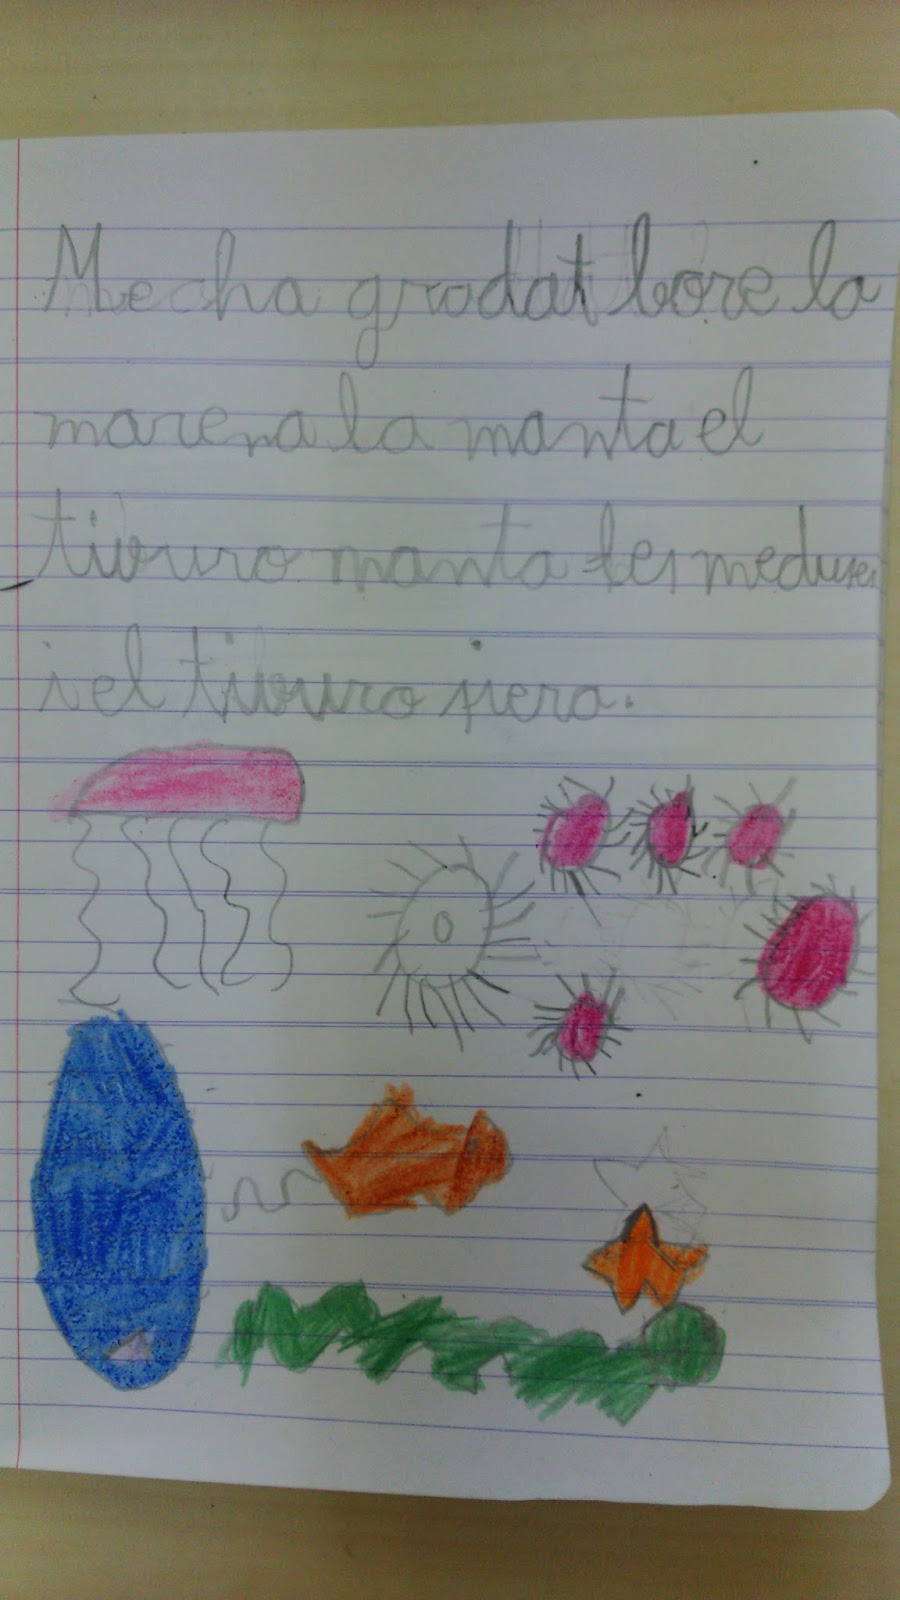 Mecha gradat bore la
marena la manta el
tivuro manta les meduses
i el tivuro jiera.